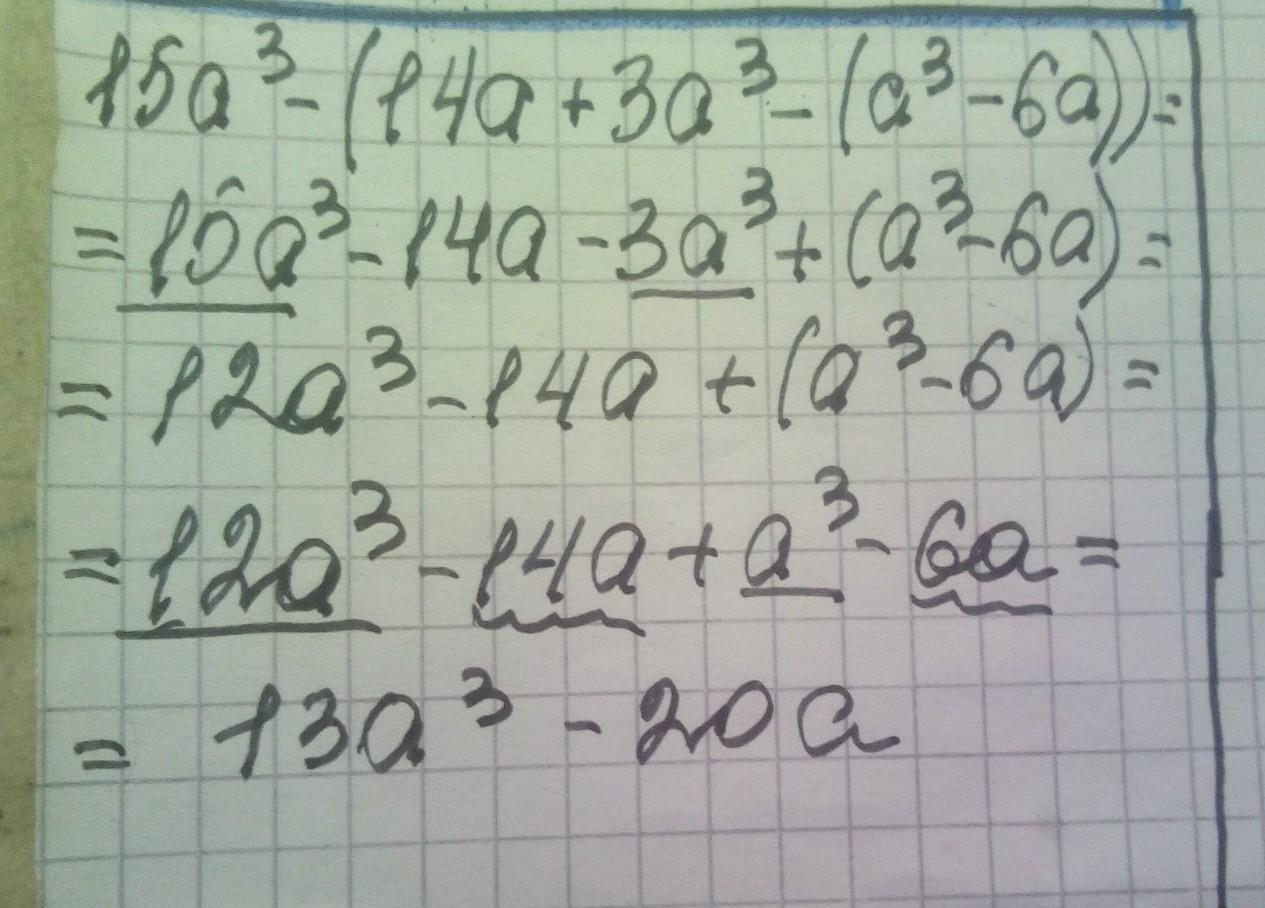 15a³ - (14a + 3a³ - (a³ - 6a)) =
= 15a³ - 14a - 3a³ + (a³ - 6a) =
= 12a³ - 14a + (a³ - 6a) =
= 12a³ - 14a + a³ - 6a =
= 13a³ - 20a